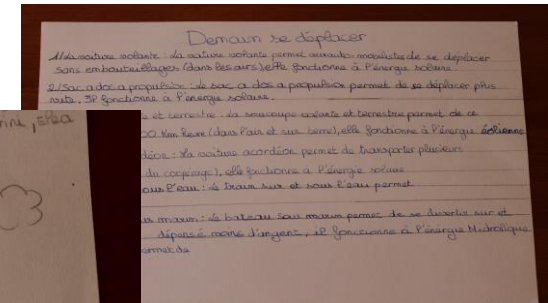 Demain se déplacer
1/ La voiture volante : La voiture volante permet aux auto-mobilistes de se déplacer
sans embouteillages (dans les airs) elle fonctionne à l'énergie solaire.
2/ Sac a dos a propulsion : Le sac a dos a propulsion permet de se déplacer plus
vite, il fonctionne a l'énergie solaire.
te et terrestre : La soucoupe volante et terrestre permet de
00 Km heure (dans l'air et sur terre), elle fonctionne à l'énergie éolienne
déon : La voiture acordéon permet de transporter plusieurs
du , elle fonctionne a l'énergie solaire
ous l'eau : Le train sur et sous l'eau permet
us marin : Le bateau sous marin permet de se divertir sur et
dépensé moins d'argent, il fonctionne à l'énergie Hidrolique
ermet de